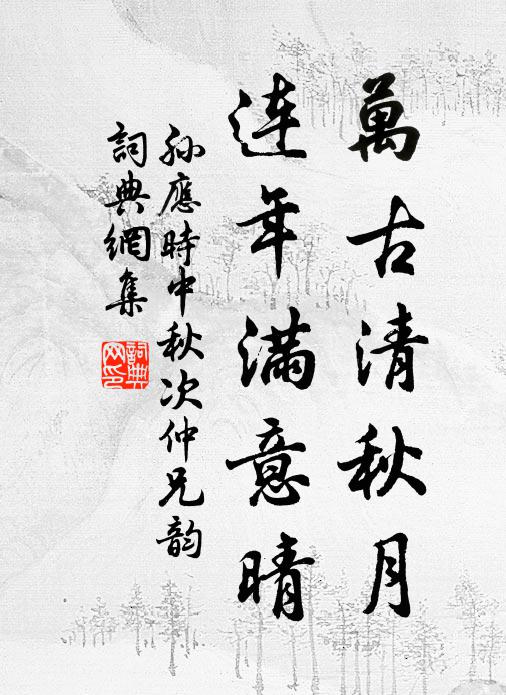 萬古清秋月
連年滿意晴
孫應時中秋次仲兄韵
詞典網集
詞典網印